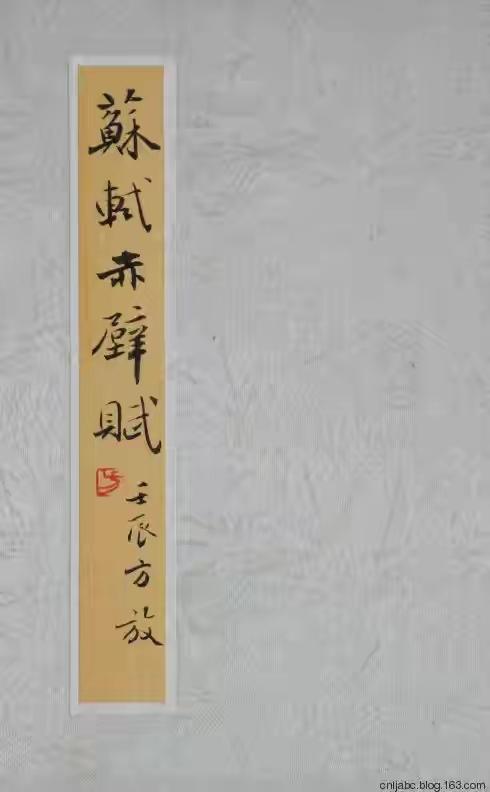 蘇軾赤壁賦
壬辰方放
cnljabc.blog.163.com